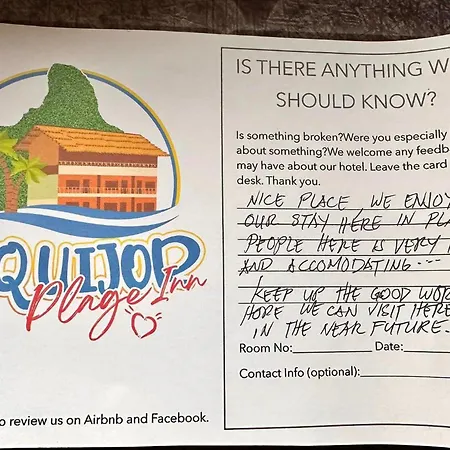 QUIJOR
Plage Inn
o review us on Airbnb and Facebook.
IS THERE ANYTHING W
SHOULD KNOW?
Is something broken?Were you especially
about something?We welcome any feedb
may have about our hotel. Leave the card
desk. Thank you.
NICE PLACE, WE ENJOY
OUR STAY HERE IN PLA
PEOPLE HERE IS VERY
AND ACCOMODATING ---
KEEP UP THE GOOD WOR
HOPE WE CAN VISIT HERE
IN THE NEAR FUTURE.
Room No: Date:
Contact Info (optional):